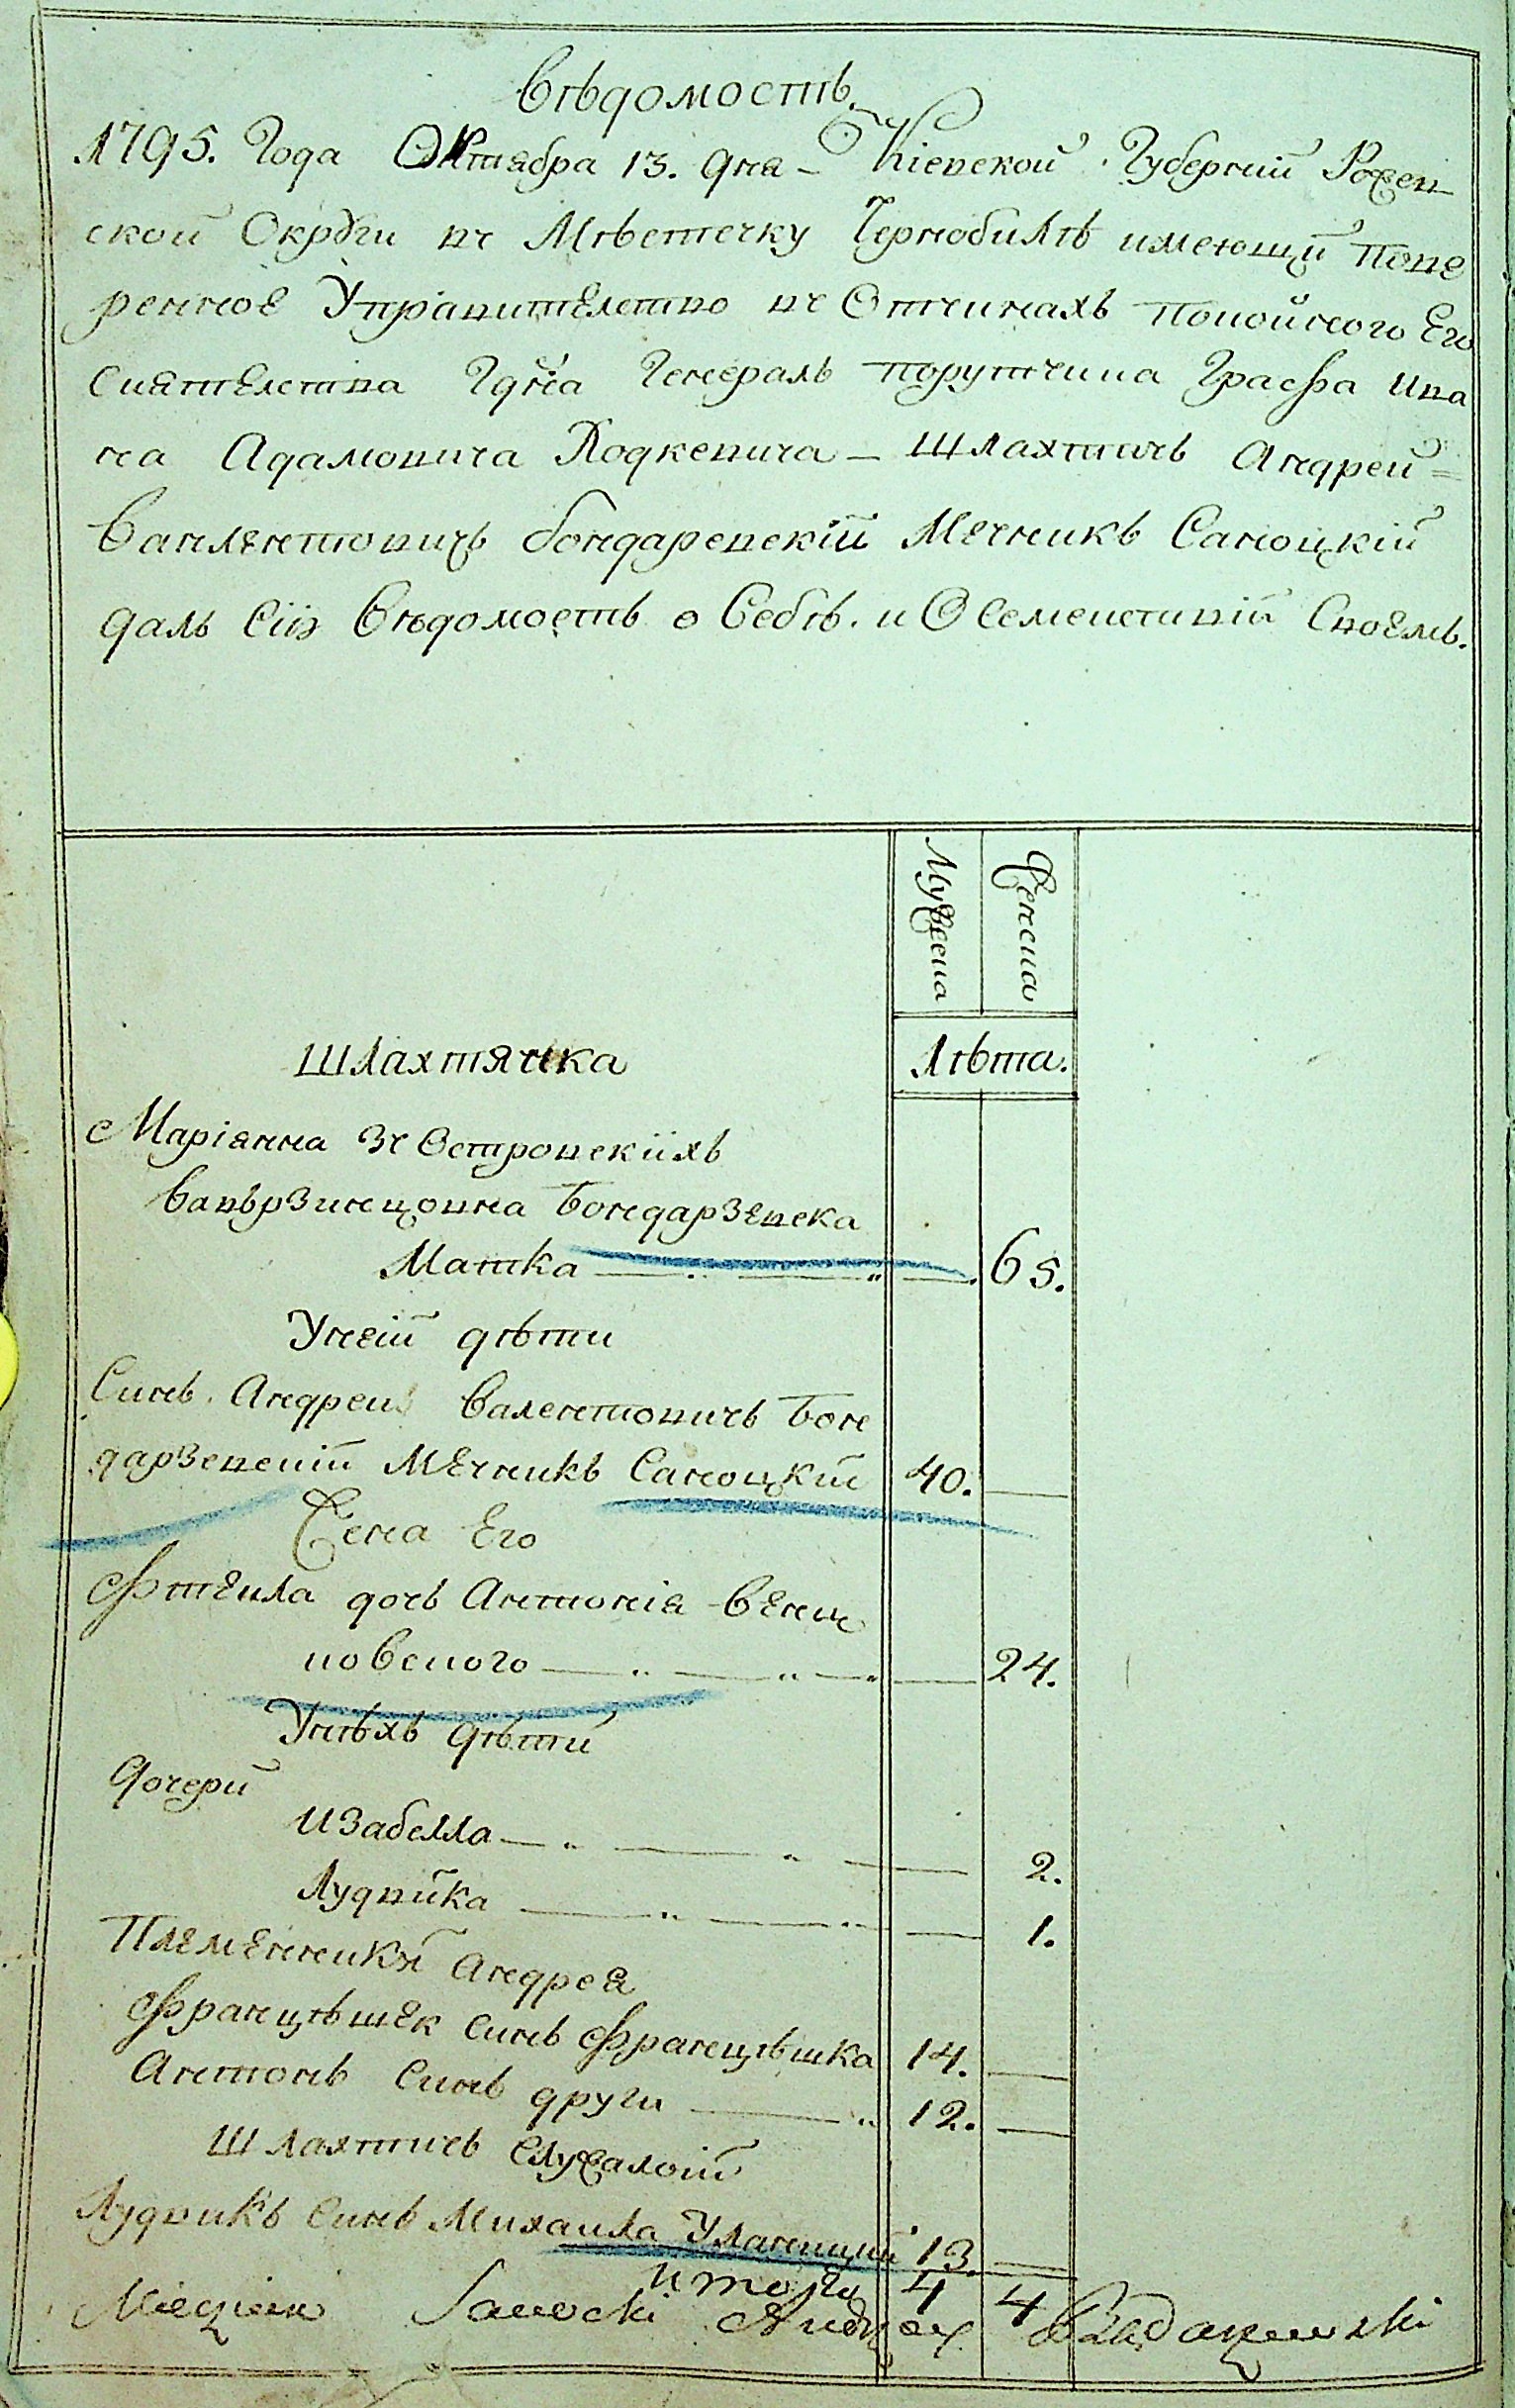 Вѣдомость
1795. Года Октября 13. дня – Кіевской Губерніи Рожев
ской Округи въ Мѣстечку Чернобилѣ имеющи пове
ренное Управителство въ Отчинахъ покойного Его
Сиятелства Гдна Генералъ порутчика Графа Ива
на Адамовича Ходкевича – Шляхтичъ Андрей
Валентовичъ Бондаревскій Мечникъ Саноцкій
далъ Сію Вѣдомость о Себѣ и О Семействій Своемъ.
Мужеска
Женска
Лѣта.
Шляхтянка
Маріянна зъ Островскіихъ
Вавързинцовна Бондарзевска
Матка 65.
У неій дѣти
Синъ Андрей Валентовичъ Бон
дарзевскій Мечникъ Саноцкій 40.
Жена Его
дочь Антонія
24.
У нѣхъ дѣти
Дочери
Изабелла 2.
Лудвика 1.
Племенники Андрея
Францѣшек Синъ Францѣшка 14.
Антонъ Синъ други 12.
Шляхтичъ Служалоій
Лудвикъ Синъ Михаила 13.
Итого 4 4
Miecznik Sanocki Andrzey Będarzewski